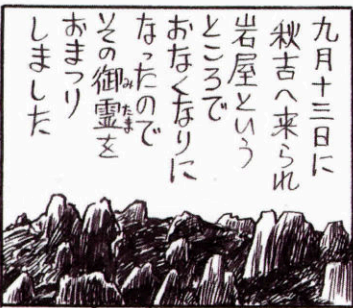 九月十三日に
秋吉へ来られ
岩屋という
ところで
おなくなりに
なったので
その御霊を
みたま
おまつり
しました